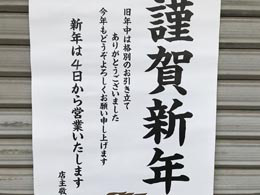 謹賀新年
旧年中は格別のお引き立て
ありがとうございました
今年もどうぞよろしくお願い申し上げます
新年は4日から営業いたします
店主敬